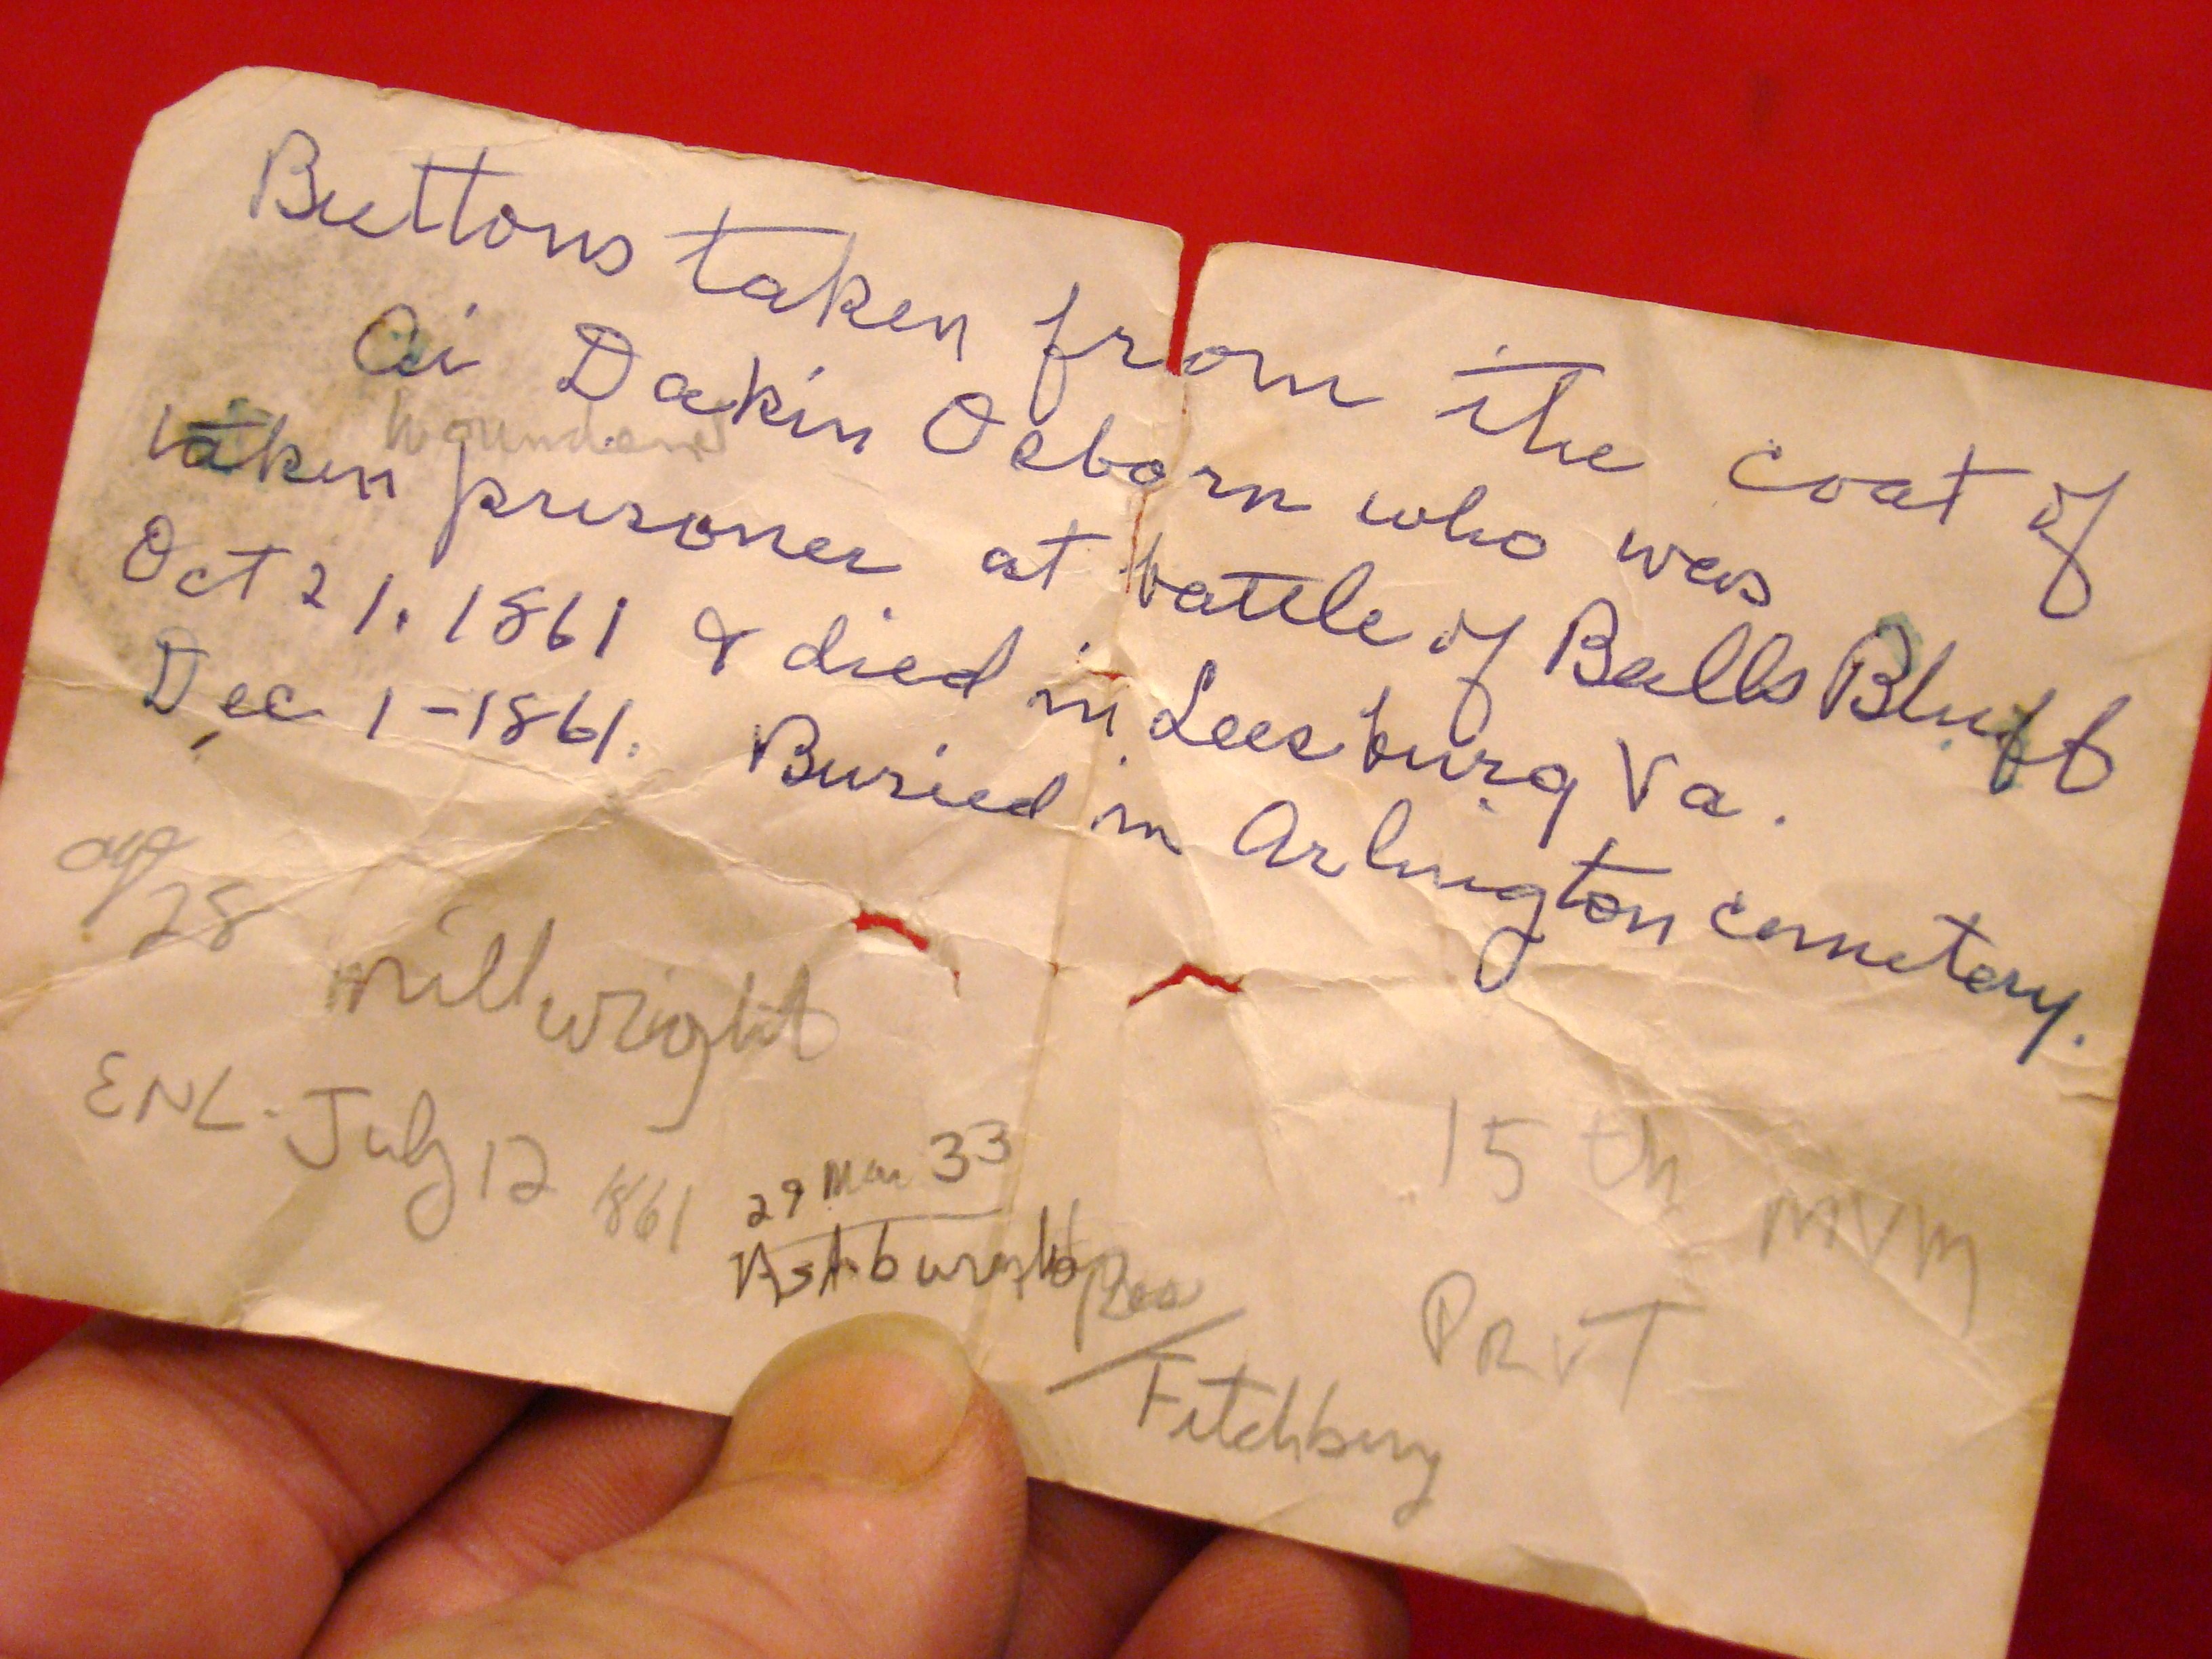 Buttons taken from the coat of
Ai Dakin Osborn who was
wounded
taken prisoner at battle of Balls Bluff
Oct 21, 1861 & died in Leesburg Va.
Dec 1-1861. Buried in Arlington cemetery.
age
28
millwright
ENL. July 12 1861
29 Mar 33
Ashburnham
Res
/
Fitchburg
15th MVM
PRVT